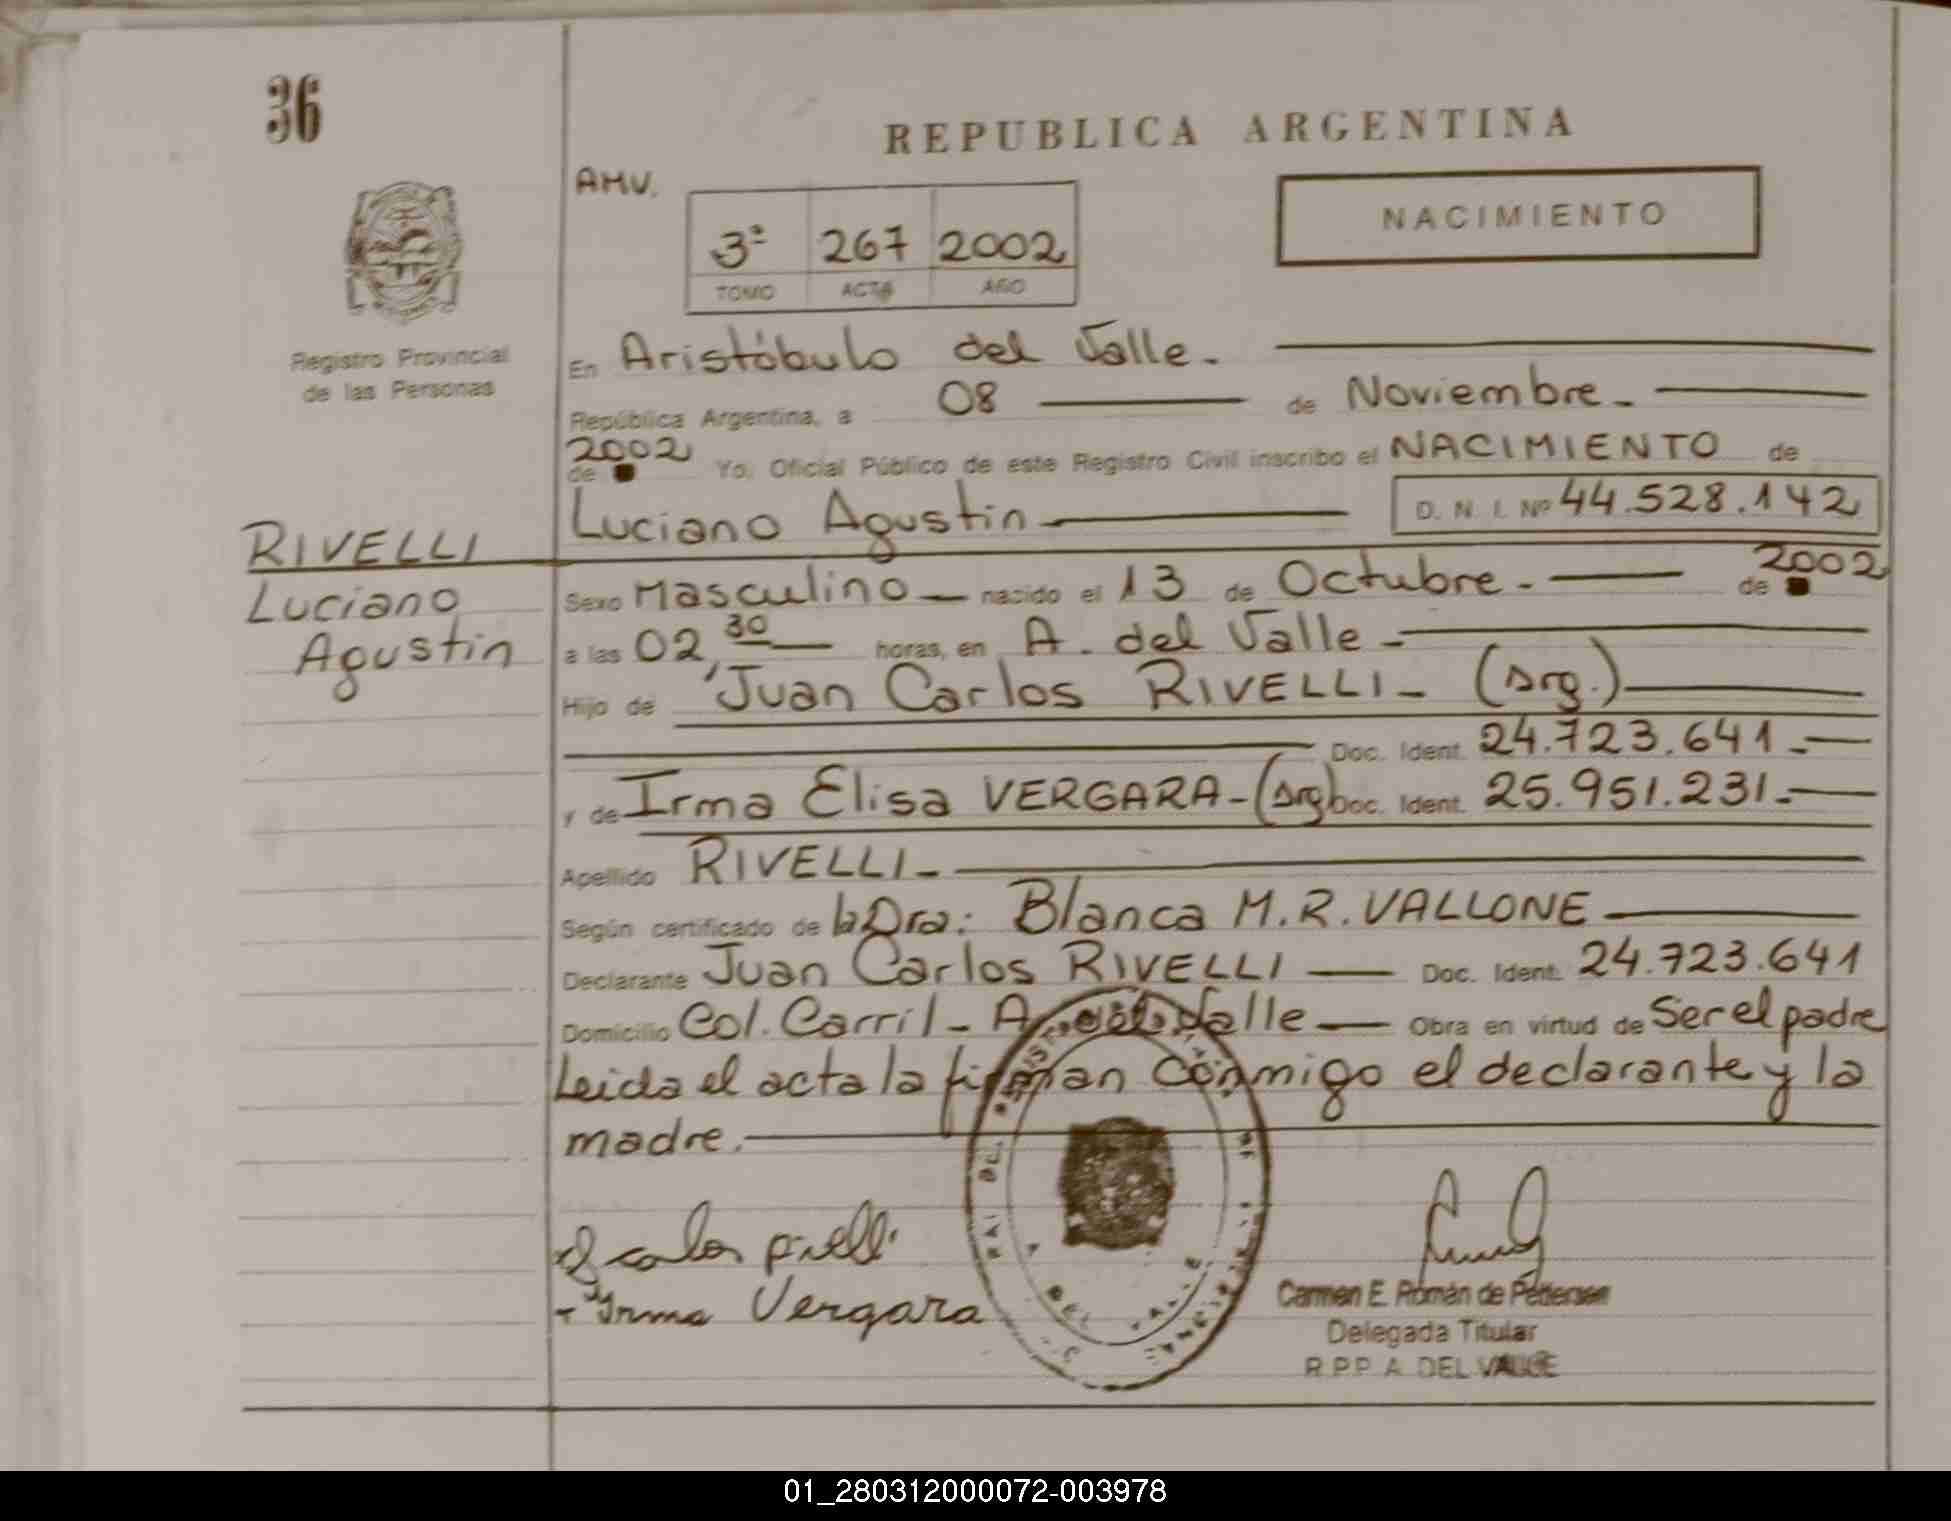 36
REPUBLICA ARGENTINA
AMV.
NACIMIENTO
3ª 267 2002
TOMO ACTA AÑO
Registro Provincial
de las Personas
En Aristóbulo del Valle.
República Argentina, a 08 de Noviembre.
de 2002 Yo, Oficial Público de este Registro Civil inscribo el NACIMIENTO de
Luciano Agustin D. N. I. Nº 44.528.142
RIVELLI
Luciano
Agustin
Sexo Masculino nacido el 13 de Octubre. de 2002
a las 02,30 horas, en A. del Valle
Hijo de Juan Carlos RIVELLI (Arg.)
Doc. Ident. 24.723.641
y de Irma Elisa VERGARA (Arg) Doc. Ident. 25.951.231
Apellido RIVELLI
Según certificado de la Dra: Blanca M.R. VALLONE
Declarante Juan Carlos RIVELLI Doc. Ident. 24.723.641
Domicilio Col. Carril - A. del Valle Obra en virtud de Ser el padre
Leida el acta la firman conmigo el declarante y la
madre.
Irma Vergara
Carmen E. Román de Pedersen
Delegada Titular
R.P.P. A. DEL VALLE
01_280312000072-003978